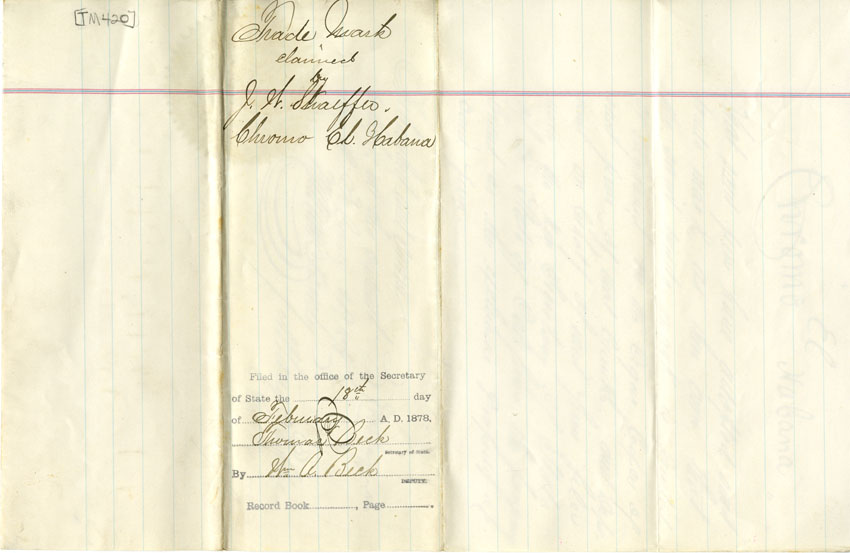 [TM420]
Trade Mark
claimed
by
J. H. Shaeffer.
Chromo El. Habana
Filed in the office of the Secretary
of State the 18th day
of February A. D. 1878,
Thomas Beck
Secretary of State.
By Wm A. Beck
DEPUTY.
Record Book , Page .